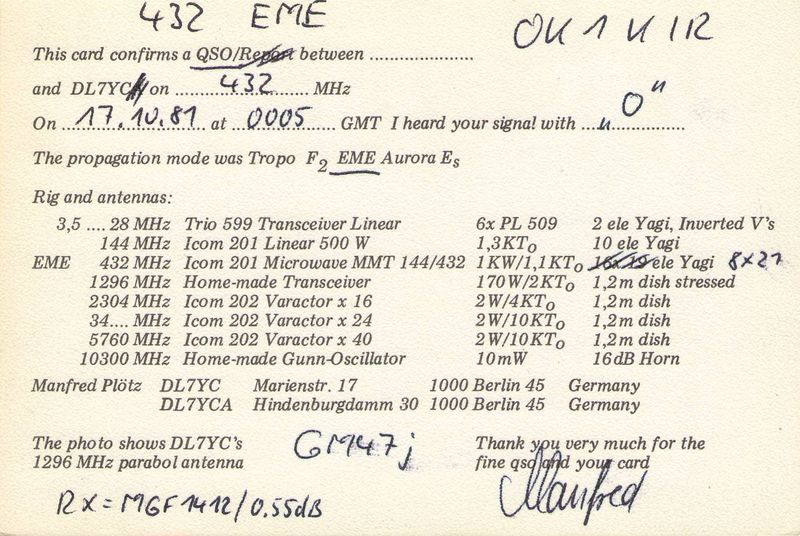 432 EME
OK1KIR
This card confirms a QSO/Report between ....................
and DL7YC on ........432........ MHz
On ..17.10.81.. at ..0005.. GMT I heard your signal with ..."O"...........
The propagation mode was Tropo F2 EME Aurora Es
Rig and antennas:
3,5 .... 28 MHz Trio 599 Transceiver Linear 6x PL 509 2 ele Yagi, Inverted V's
144 MHz Icom 201 Linear 500 W 1,3KTo 10 ele Yagi
EME 432 MHz Icom 201 Microwave MMT 144/432 1KW/1,1KTo 16x19 ele Yagi 8x21
1296 MHz Home-made Transceiver 170W/2KTo 1,2m dish stressed
2304 MHz Icom 202 Varactor x 16 2W/4KTo 1,2m dish
34.... MHz Icom 202 Varactor x 24 2W/10KTo 1,2m dish
5760 MHz Icom 202 Varactor x 40 2W/10KTo 1,2m dish
10300 MHz Home-made Gunn-Oscillator 10mW 16dB Horn
Manfred Plötz DL7YC Marienstr. 17 1000 Berlin 45 Germany
DL7YCA Hindenburgdamm 30 1000 Berlin 45 Germany
The photo shows DL7YC's GM47j Thank you very much for the
1296 MHz parabol antenna fine qso and your card
RX = MGF1412/0.55dB Manfred